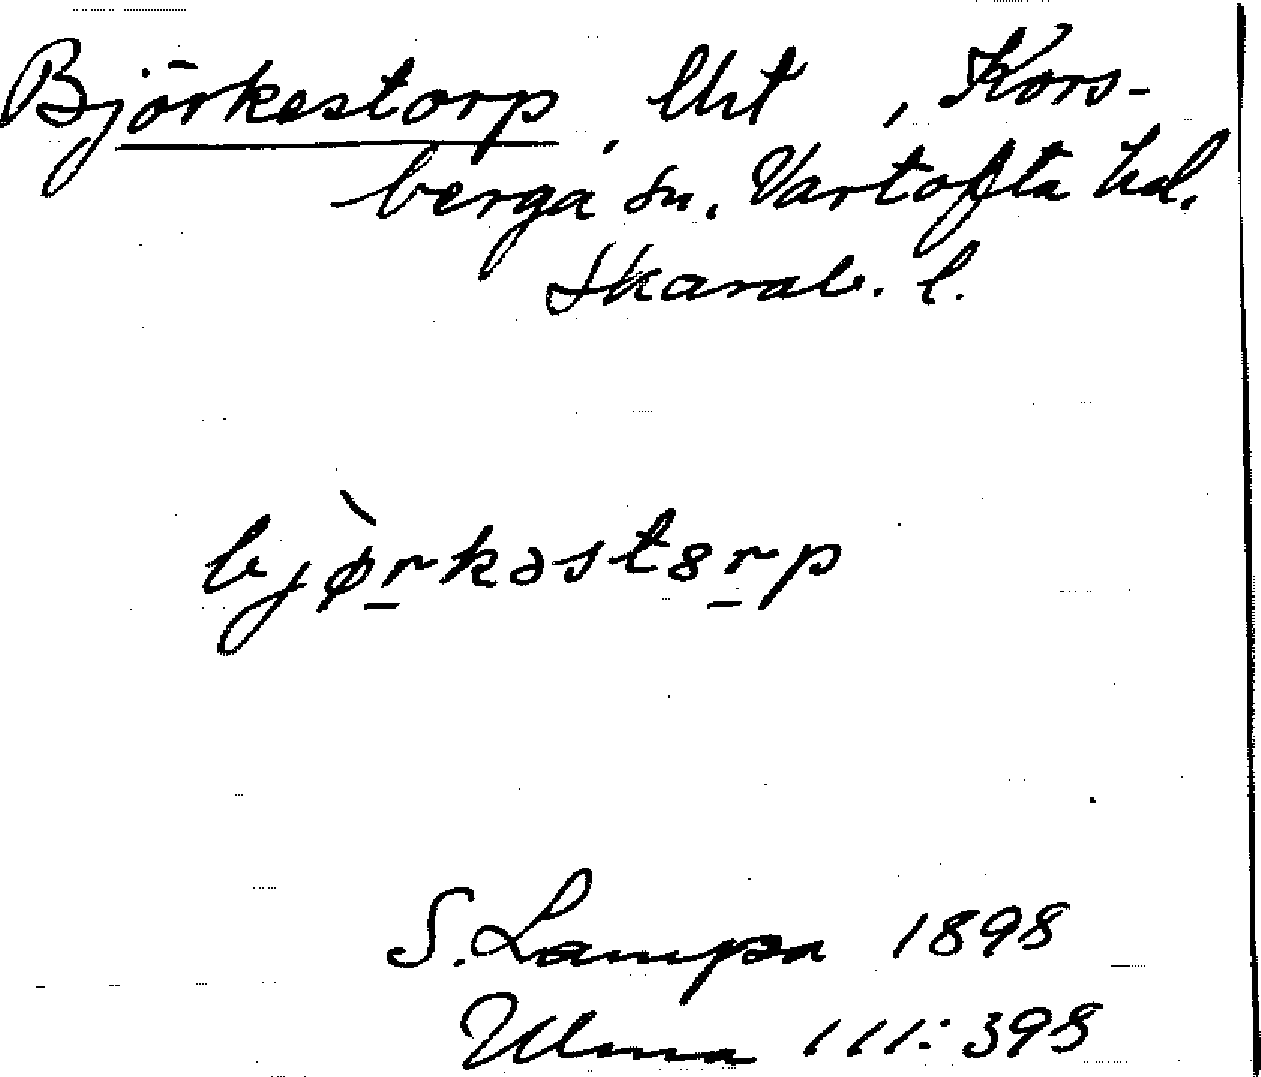 Björkestorp, Uht, Kors-
berga sn. Vartofta hd.
Skarab. l.
bjø̀r̲kəstɞr̲p
S. Lampa 1898
Ulma 111:398